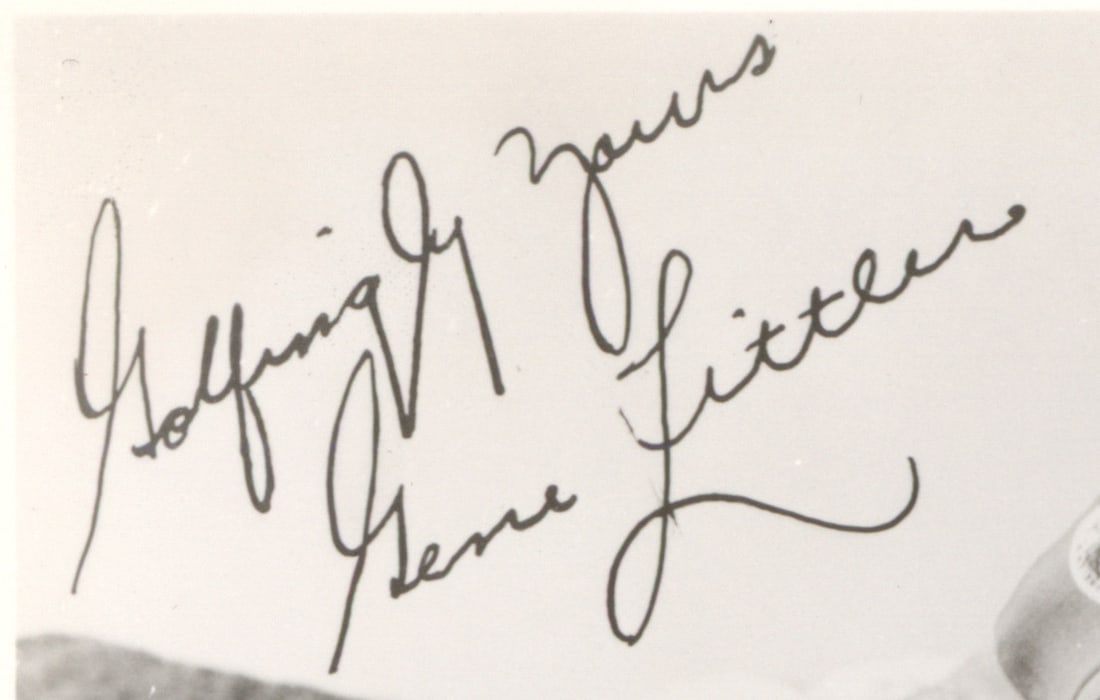 Golfingly yours
Gene Littler